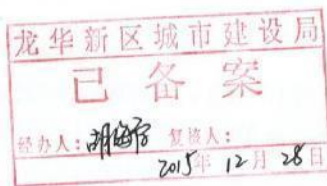 龙华新区城市建设局
已备案
经办人: 复核人:
2015年 12月 28日